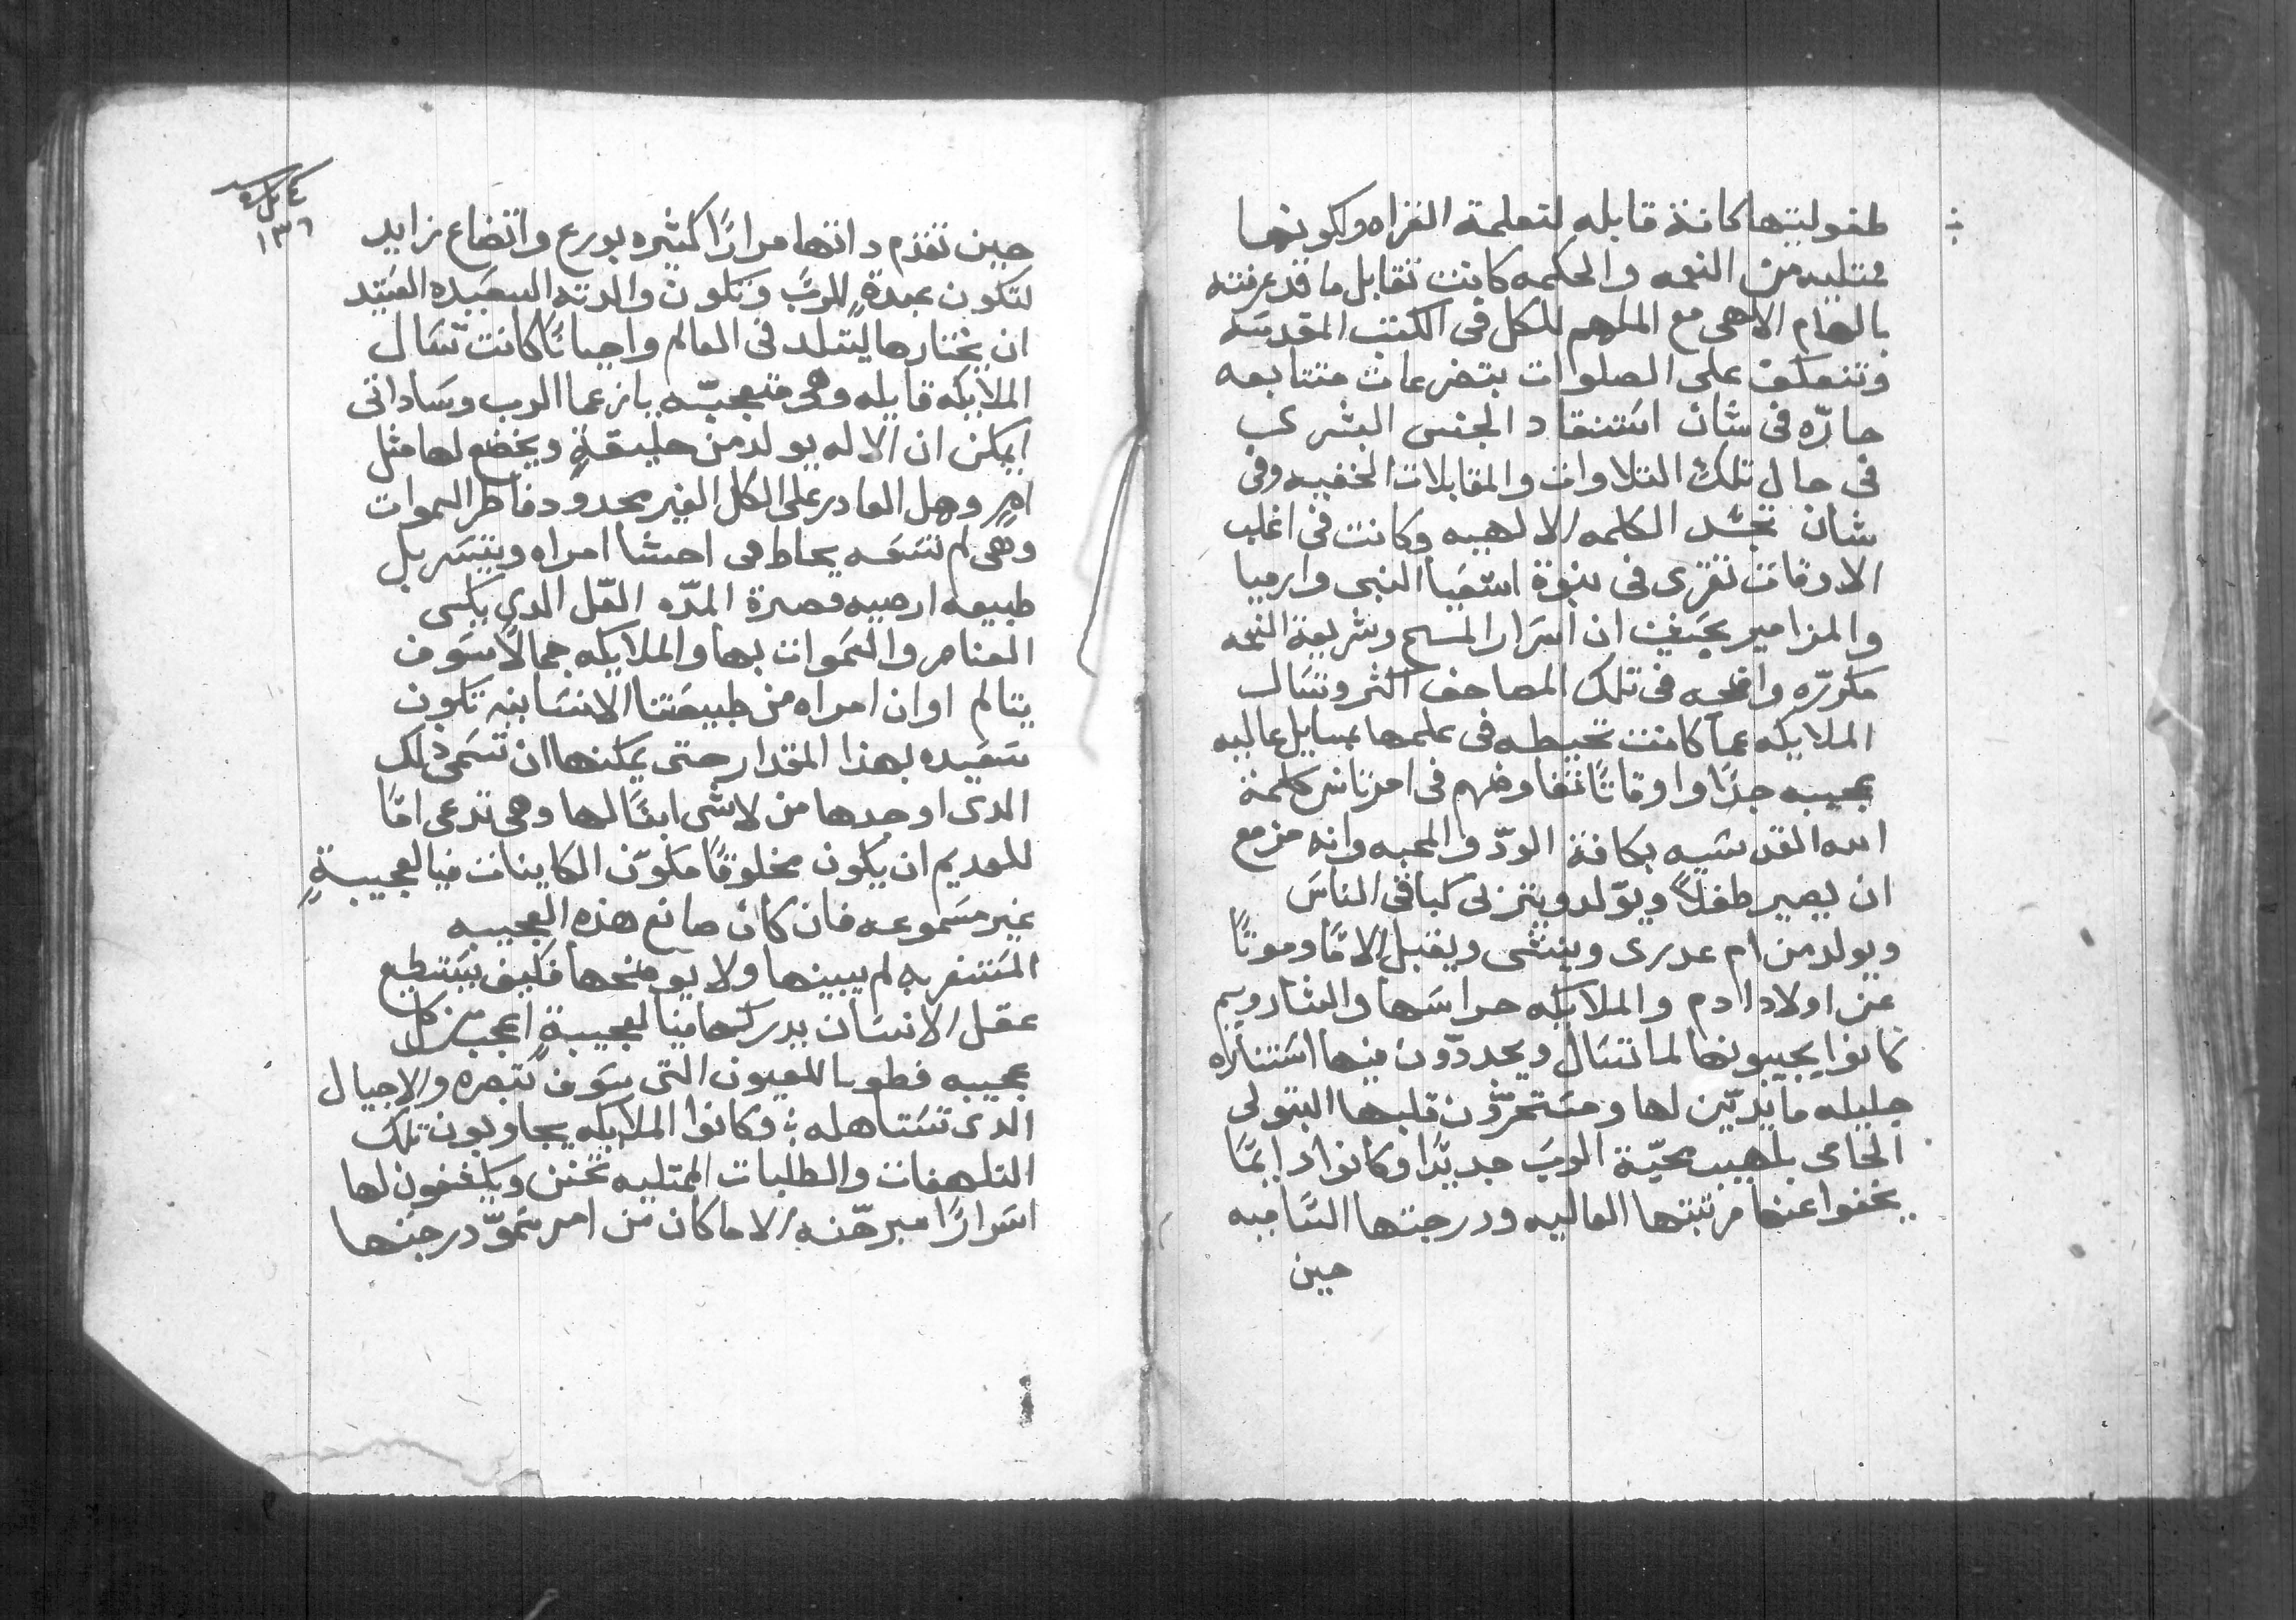 طفوليتها كانة قابله لتعلمة القراه ولكونها
ممتليه من النعمه والحكمه كانت تقابل ما قد عرفته
بالهام الاهي مع الملهم للكل في الكتب المقدسه
وتنعكف على الصلوات بتضرعات متتابعه
حارّه في شان استنقاد الجنس البشري
في حال تلك التلاوات والمقابلات الخفيه وفي
شان تجسّد الكلمه الالهيه وكانت في اغلب
الاوقات تقرى في نبوة اشعيا النبي وارميا
والمزامير بحيث ان اسرار المسيح وشريعة النعمه
مكررّه واضحه في تلك المصاحف اكثر وتسال
الملايكه عما كانت تحيطه في علمها بمسايل عاليه
عجيبه جدًا واوقاتًا تفاوضهم في امر تانس كلمة
الله القدسيه بكافة الودّ والمحبه وانه مزمع
ان يصير طفلاً ويوّلد ويتربى كباقي الناس
ويولد من ام عدرى وينشى ويقبل الامًا وموتًا
عن اولاد ادم والملايكه حراسها والشاروبيم
كانوا يجيبونها لما تسال ويجددّون فيها استناره
جليله مايدّين لها ومستحرّون قلبها البتولي
الحامي بلهيب محبّة الرب جديدًا وكانوا دايمًا
يخفوا عنها مرتبتها العاليه ودرجتها الساميه
حين
٤ كراس
١٣٦
حين تقدم داتها مرارًا كثيره بورع واتضاع زايد
لتكون عبدةً للرب وتكون والدته السعيده العتيد
ان يختارها ليتلد في العالم واحيانًا كانت تسال
الملايكه قايله وهي متعجبّه يا زعما الرب وساداتي
ايمكن ان الاله يولد من خليقةٍ ويخضع لها مثل
امٍ وهل القادر على الكل الغير محدود فاطر السموات
وهي لم تسعه يحاط في احشا امراه ويتسربل
طبيعه ارضيه قصيرة المدّه العل الدي يكسى
العناصر والسموات بها والملايكه جمالاً سوف
يتالم اوان امراه من طبيعتنا الانسانيه تكون
سعيده بهذا المقدار حتى يمكنها ان تسمى ذلك
الدي اوجدها من لاشى ابنًا لها وهي تدعى امًا
للعديم ان يكون مخلوقًا مكوّن الكاينات فيا لعجيبةٍ
غير مسموعه فان كان صانع هذه العجيبه
المستغربه لم يبينها ولا يوضحها فكيف يستطيع
عقل الانسان يدركها فيا لعجيبةٍ اعجب من كل
عجيبه فطوبا للعيون التي سوف تبصره والاجيال
الدي تستاهله ؛ وكانوا الملايكه يجاوبون تلك
التلهفات والطلبات الممتليه تحنن ويكشفون لها
اسرارًا مبرهّنه الا ما كان من امر سموّ درجتها